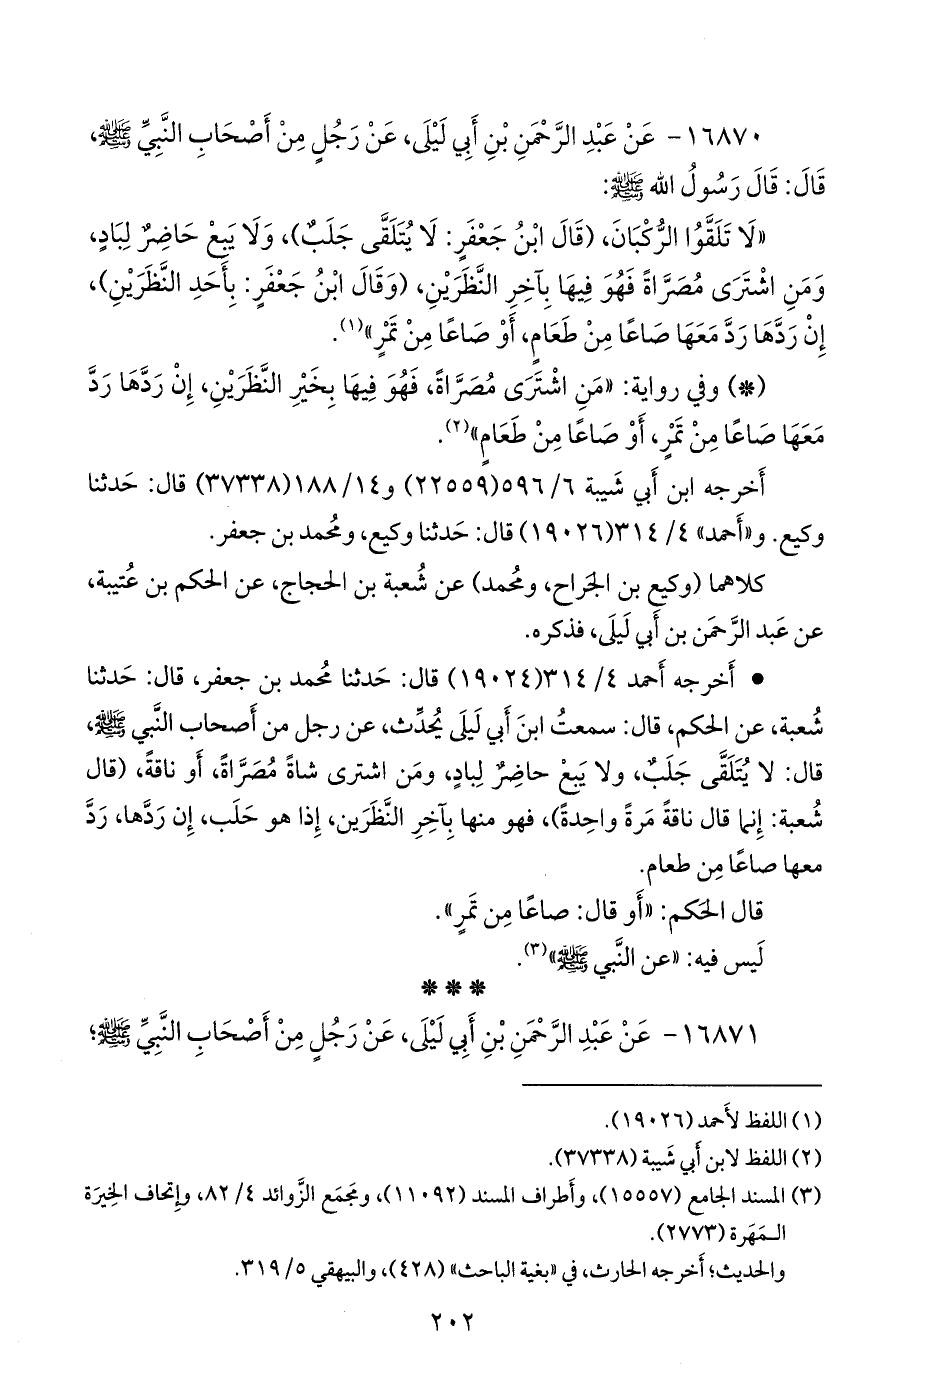 ١٦٨٧٠- عَنْ عَبْدِ الرَّحْمَنِ بْنِ أَبِي لَيْلَى، عَنْ رَجُلٍ مِنْ أَصْحَابِ النَّبِيِّ ﷺ،
قَالَ: قَالَ رَسُولُ الله ﷺ:
«لَا تَلَقَّوُا الرُّكْبَانَ، (قَالَ ابْنُ جَعْفَرٍ: لَا يُتَلَقَّى جَلَبٌ)، وَلَا يَبِعْ حَاضِرٌ لِبَادٍ،
وَمَنِ اشْتَرَى مُصَرَّاةً فَهُوَ فِيهَا بِآخِرِ النَّظَرَيْنِ، (وَقَالَ ابْنُ جَعْفَرٍ: بِأَحَدِ النَّظَرَيْنِ)،
إِنْ رَدَّهَا رَدَّ مَعَهَا صَاعًا مِنْ طَعَامٍ، أَوْ صَاعًا مِنْ تَمْرٍ»(١).
(*) وفي رواية: «مَنِ اشْتَرَى مُصَرَّاةً، فَهُوَ فِيهَا بِخَيْرِ النَّظَرَيْنِ، إِنْ رَدَّهَا رَدَّ
مَعَهَا صَاعًا مِنْ تَمْرٍ، أَوْ صَاعًا مِنْ طَعَامٍ»(٢).
أَخرجه ابن أَبي شَيبة ٦/ ٥٩٦(٢٢٥٥٩) و١٤/ ١٨٨(٣٧٣٣٨) قال: حَدثنا
وكيع. و«أَحمد» ٤/ ٣١٤(١٩٠٢٦) قال: حَدثنا وكيع، ومُحمد بن جعفر.
كلاهما (وكيع بن الجَراح، ومُحمد) عن شُعبة بن الحجاج، عن الحكم بن عُتيبة،
عن عَبد الرَّحمَن بن أَبي لَيلَى، فذكره.
• أَخرجه أَحمد ٤/ ٣١٤(١٩٠٢٤) قال: حَدثنا مُحمد بن جعفر، قال: حَدثنا
شُعبة، عن الحكم، قال: سمعتُ ابنَ أَبي لَيلَى يُحدِّث، عن رجل من أَصحاب النَّبي ﷺ،
قال: لا يُتَلَقَّى جَلَبٌ، ولا يَبِعْ حاضِرٌ لِبادٍ، ومَن اشترى شاةً مُصَرَّاةً، أَو ناقةً، (قال
شُعبة: إِنما قال ناقةً مَرةً واحِدةً)، فهو منها بِآخِرِ النَّظَرَين، إِذا هو حَلَب، إِن ردَّها، رَدَّ
معها صاعًا مِن طعام.
قال الحَكم: «أَو قال: صاعًا مِن تَمَرٍ».
لَيس فيه: «عن النَّبي ﷺ»(٣).
* * *
١٦٨٧١- عَنْ عَبْدِ الرَّحْمَنِ بْنِ أَبِي لَيْلَى، عَنْ رَجُلٍ مِنْ أَصْحَابِ النَّبِيِّ ﷺ؛
(١) اللفظ لأَحمد (١٩٠٢٦).
(٢) اللفظ لابن أَبي شَيبة (٣٧٣٣٨).
(٣) المسند الجامع (١٥٥٥٧)، وأَطراف المسند (١١٠٩٢)، ومَجمَع الزَّوائد ٤/ ٨٢، وإِتحاف الخِيرَة
الـمَهَرة (٢٧٧٣).
والحديث؛ أَخرجه الحارث، في «بغية الباحث» (٤٢٨)، والبيهقي ٥/ ٣١٩.
٢٠٢